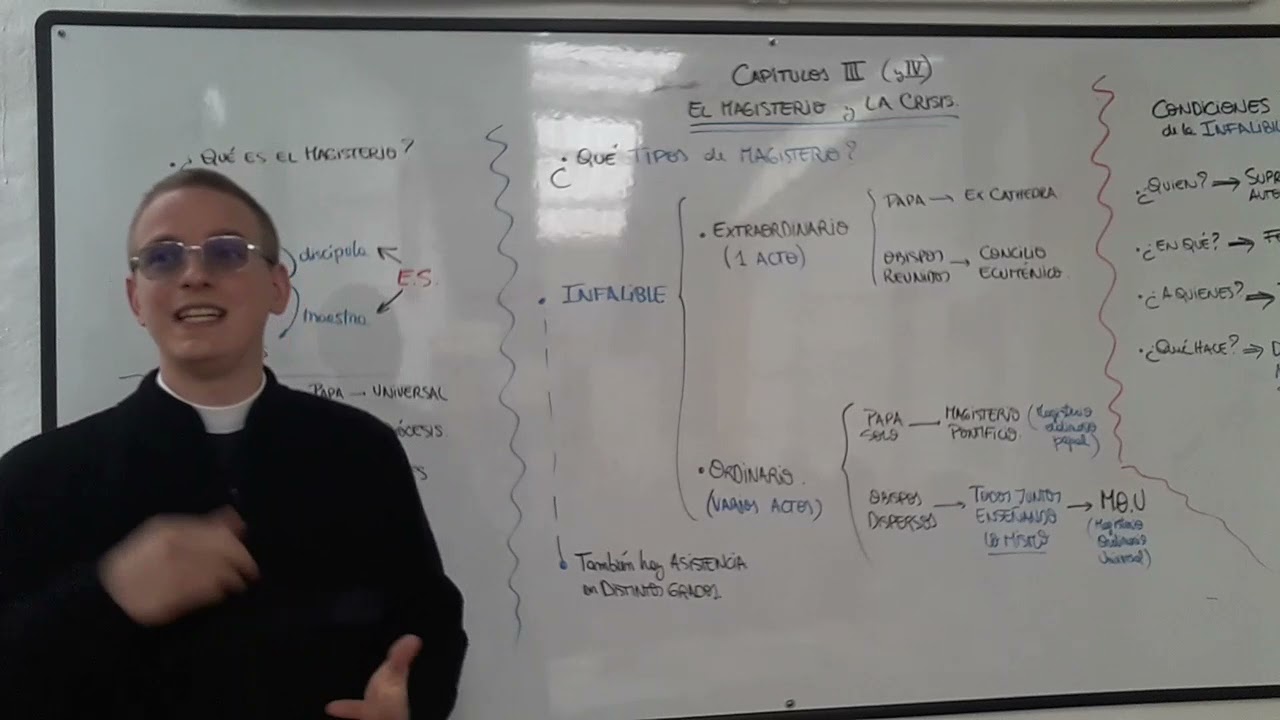 CAPÍTULOS III (y IV)
EL MAGISTERIO y LA CRISIS.
• ¿QUÉ ES EL MAGISTERIO?
discípula
E.S.
maestra
PAPA → UNIVERSAL
• ¿QUÉ TIPOS de MAGISTERIO?
• INFALIBLE
• EXTRAORDINARIO
(1 ACTO)
PAPA → EX CATHEDRA
OBISPOS REUNIDOS → CONCILIO ECUMÉNICO
• ORDINARIO.
(VARIOS ACTOS)
PAPA SOLO → MAGISTERIO PONTIFICIO. (Magisterio ordinario papal)
OBISPOS DISPERSOS → TODOS JUNTOS ENSEÑANDO LO MISMO → M.O.U (Magisterio Ordinario Universal)
• También hay ASISTENCIA
en DISTINTOS GRADOS.
CONDICIONES
de la INFALIBIL
• ¿QUIEN? ⇒ SUPR
AUTO
• ¿EN QUÉ? ⇒
• ¿A QUIENES? ⇒
• ¿QUÉ HACE? ⇒ D